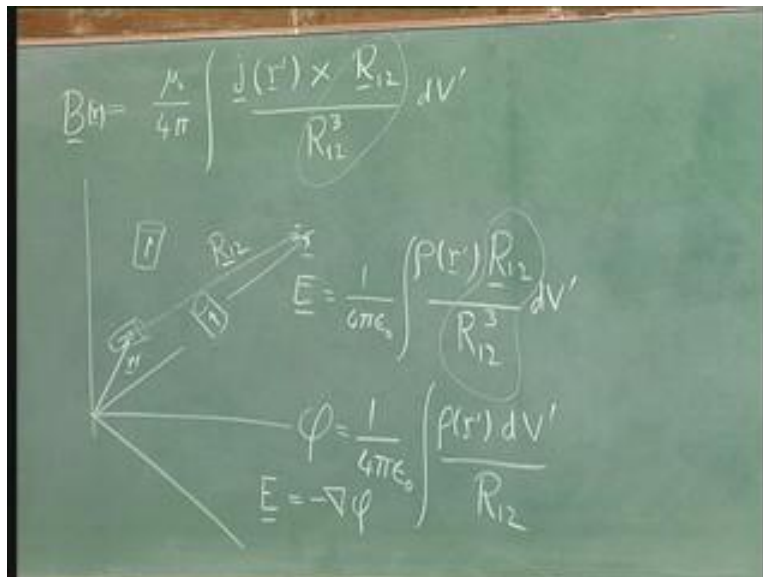 B(r) = μ₀/4π ∫ j(r') × R₁₂ / R₁₂³ dV'
R₁₂
r
r'
E = 1/4πε₀ ∫ ρ(r') R₁₂ / R₁₂³ dV'
φ = 1/4πε₀ ∫ ρ(r') dV' / R₁₂
E = -∇φ